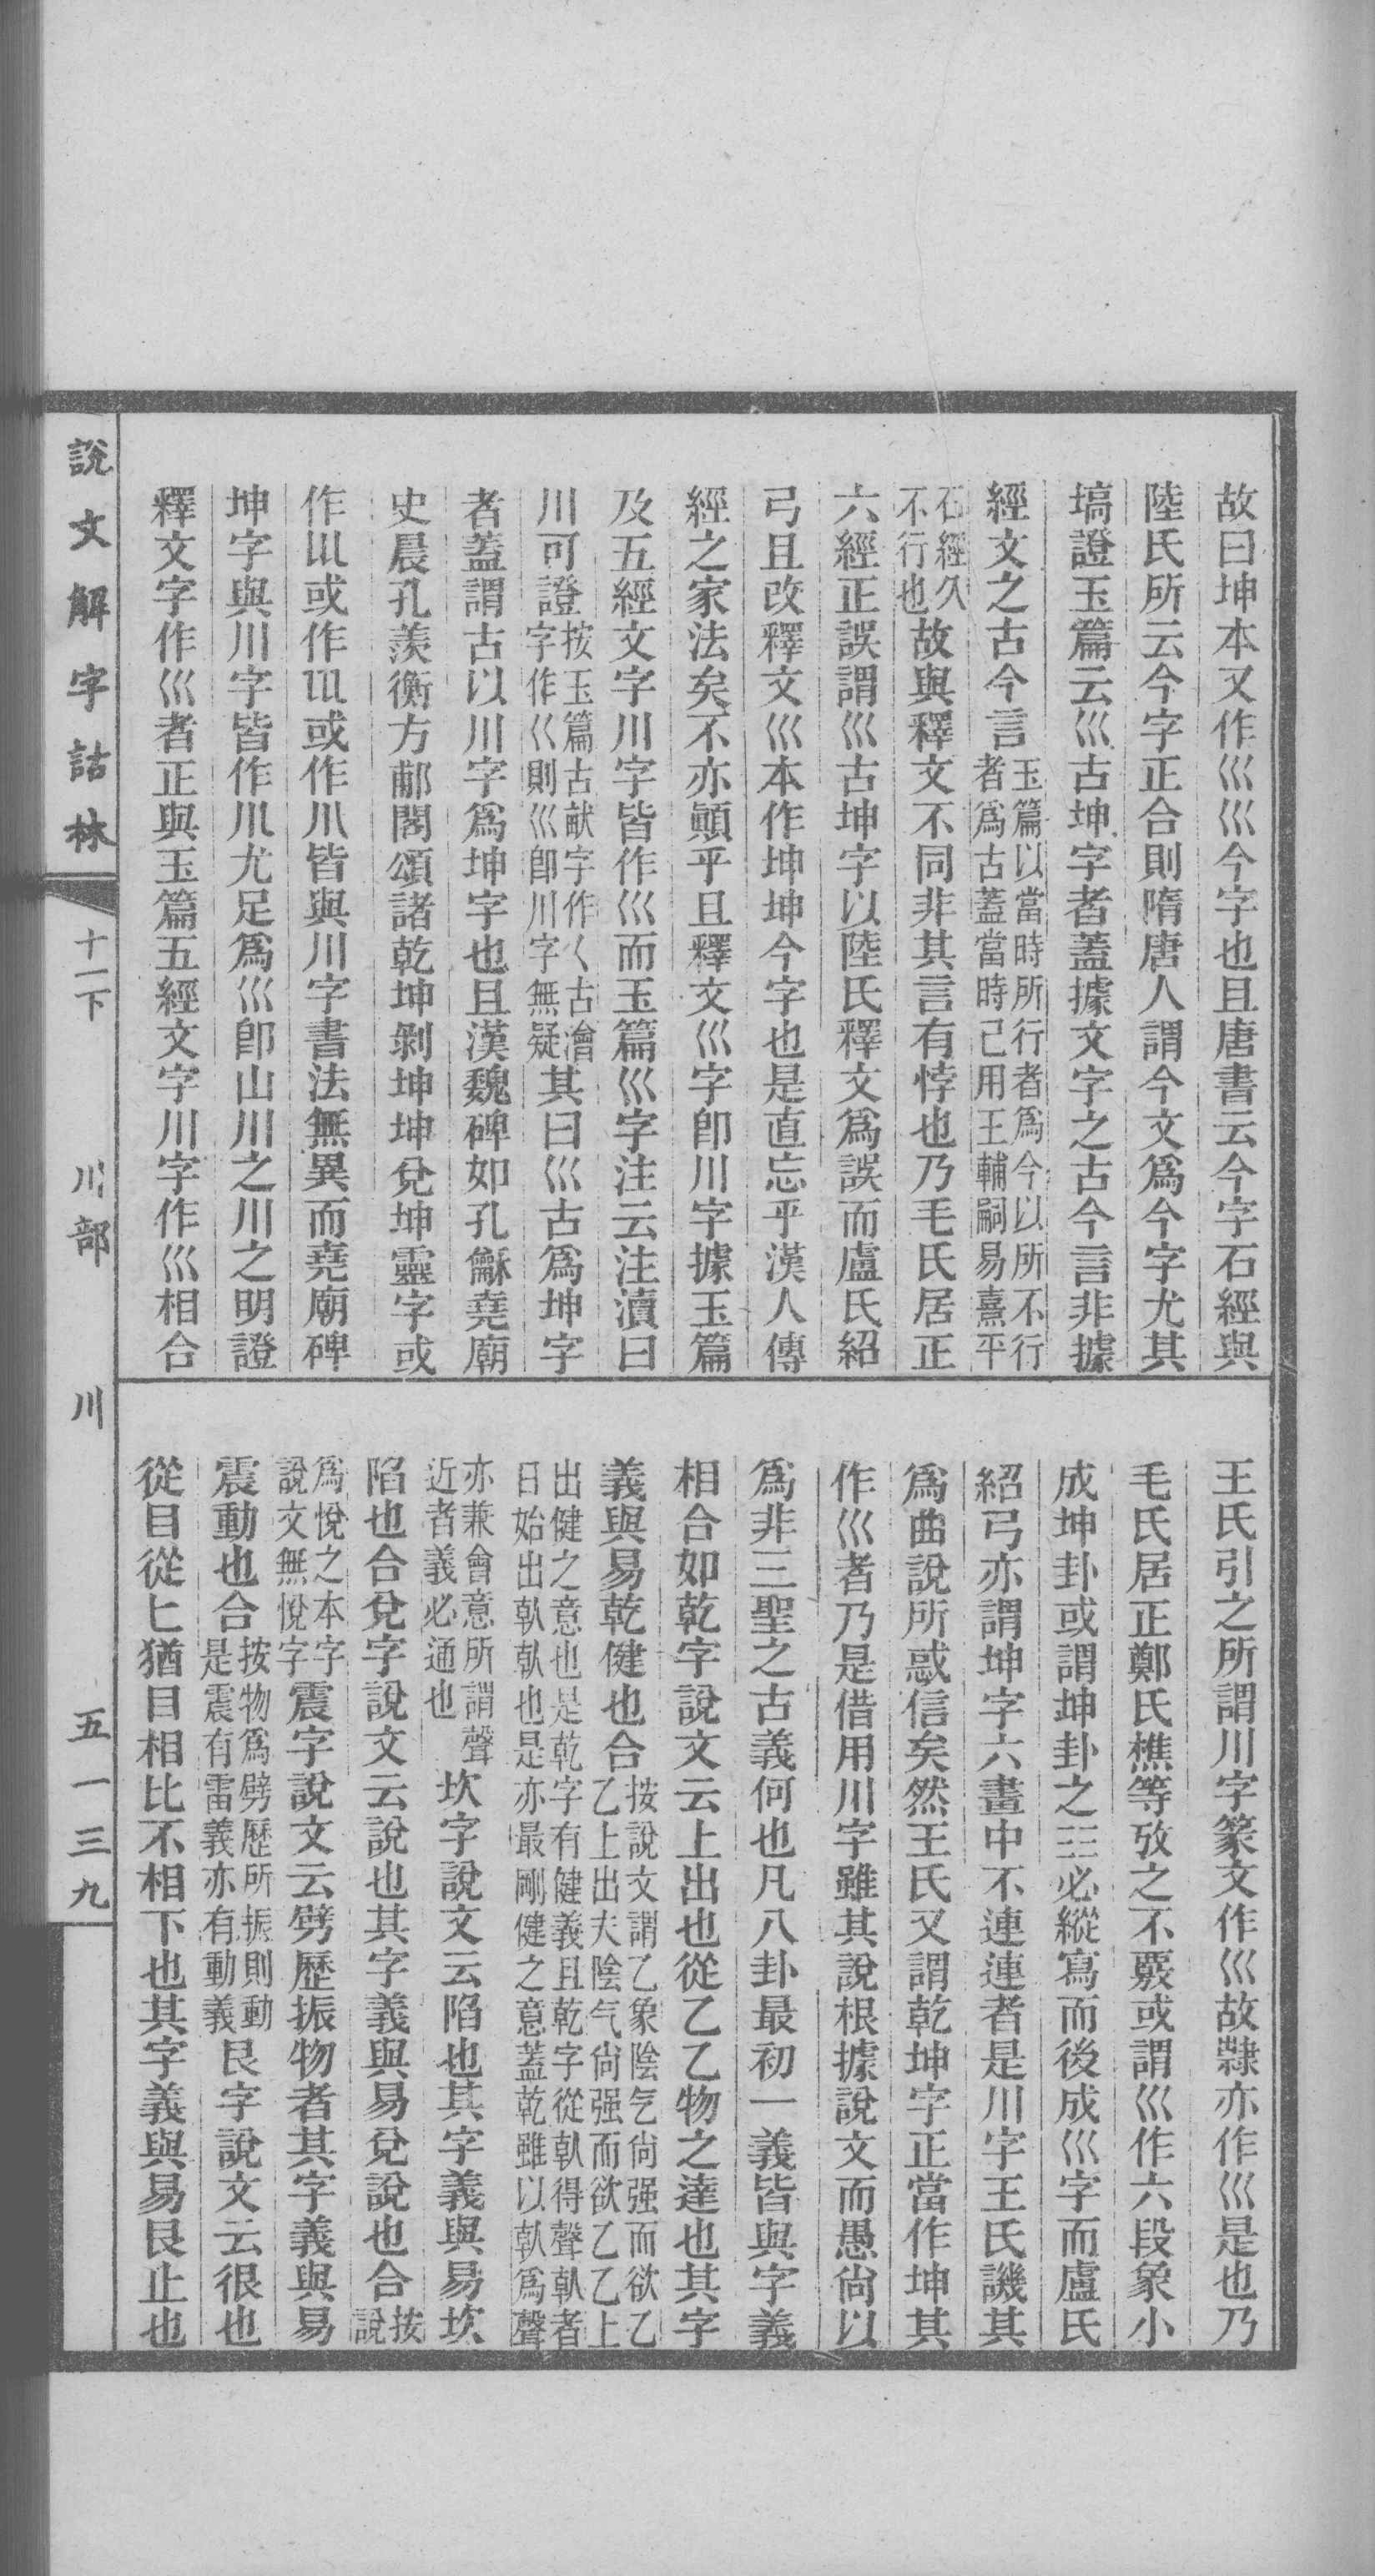 故曰坤本又作巛巛今字也且唐書云今字石經與
陸氏所云今字正合則隋唐人謂今文爲今字尤其
塙證玉篇云巛古坤字者蓋據文字之古今言非據
經文之古今言玉篇以當時所行者爲今以所不行
者爲古蓋當時己用王輔嗣易熹平
石經久
不行也故與釋文不同非其言有悖也乃毛氏居正
六經正誤謂巛古坤字以陸氏釋文爲誤而盧氏紹
弓且改釋文巛本作坤坤今字也是直忘乎漢人傳
經之家法矣不亦顚乎且釋文巛字卽川字據玉篇
及五經文字川字皆作巛而玉篇巛字注云注瀆曰
川可證按玉篇古畎字作𡿨古澮
字作巜則巛卽川字無疑其曰巛古爲坤字
者蓋謂古以川字爲坤字也且漢魏碑如孔龢堯廟
史晨孔羨衡方郙閣頌諸乾坤剝坤坤兌坤靈字或
作或作或作皆與川字書法無異而堯廟碑
坤字與川字皆作尤足爲巛卽山川之川之明證
釋文字作巛者正與玉篇五經文字川字作巛相合
王氏引之所謂川字篆文作巛故隸亦作巛是也乃
毛氏居正鄭氏樵等攷之不覈或謂巛作六段象小
成坤卦或謂坤卦之☷必縱寫而後成巛字而盧氏
紹弓亦謂坤字六畫中不連連者是川字王氏譏其
爲曲說所惑信矣然王氏又謂乾坤字正當作坤其
作巛者乃是借用川字雖其說根據說文而愚尙以
爲非三聖之古義何也凡八卦最初一義皆與字義
相合如乾字說文云上出也從乙乙物之達也其字
義與易乾健也合按說文謂乙象陰乞尙强而欲乙
乙上出夫陰气尙强而欲乙乙上
出健之意也是乾字有健義且乾字從倝得聲倝者
日始出倝倝也是亦最剛健之意蓋乾雖以倝爲聲
亦兼會意所謂聲
近者義必通也坎字說文云陷也其字義與易坎
陷也合兌字說文云說也其字義與易兌說也合按
說
爲悅之本字
說文無悅字震字說文云劈歷振物者其字義與易
震動也合按物爲劈歷所振則動
是震有雷義亦有動義艮字說文云很也
從目從匕猶目相比不相下也其字義與易艮止也
說文解字詁林 十一下 川部 川 五一三九